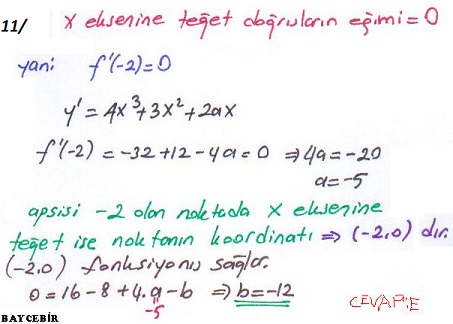 11/ x eksenine teğet doğruların eğimi = 0
yani f'(-2)=0
y' = 4x³+3x²+2ax
f'(-2) = -32+12-4a=0 ⇒ 4a=-20
a=-5
apsisi -2 olan noktada x eksenine
teğet ise noktanın koordinatı ⇒ (-2,0) dır.
(-2,0) fonksiyonu sağlar.
0 = 16-8+4.a-b ⇒ b=-12
-5
CEVAP:E
BAYCEBİR